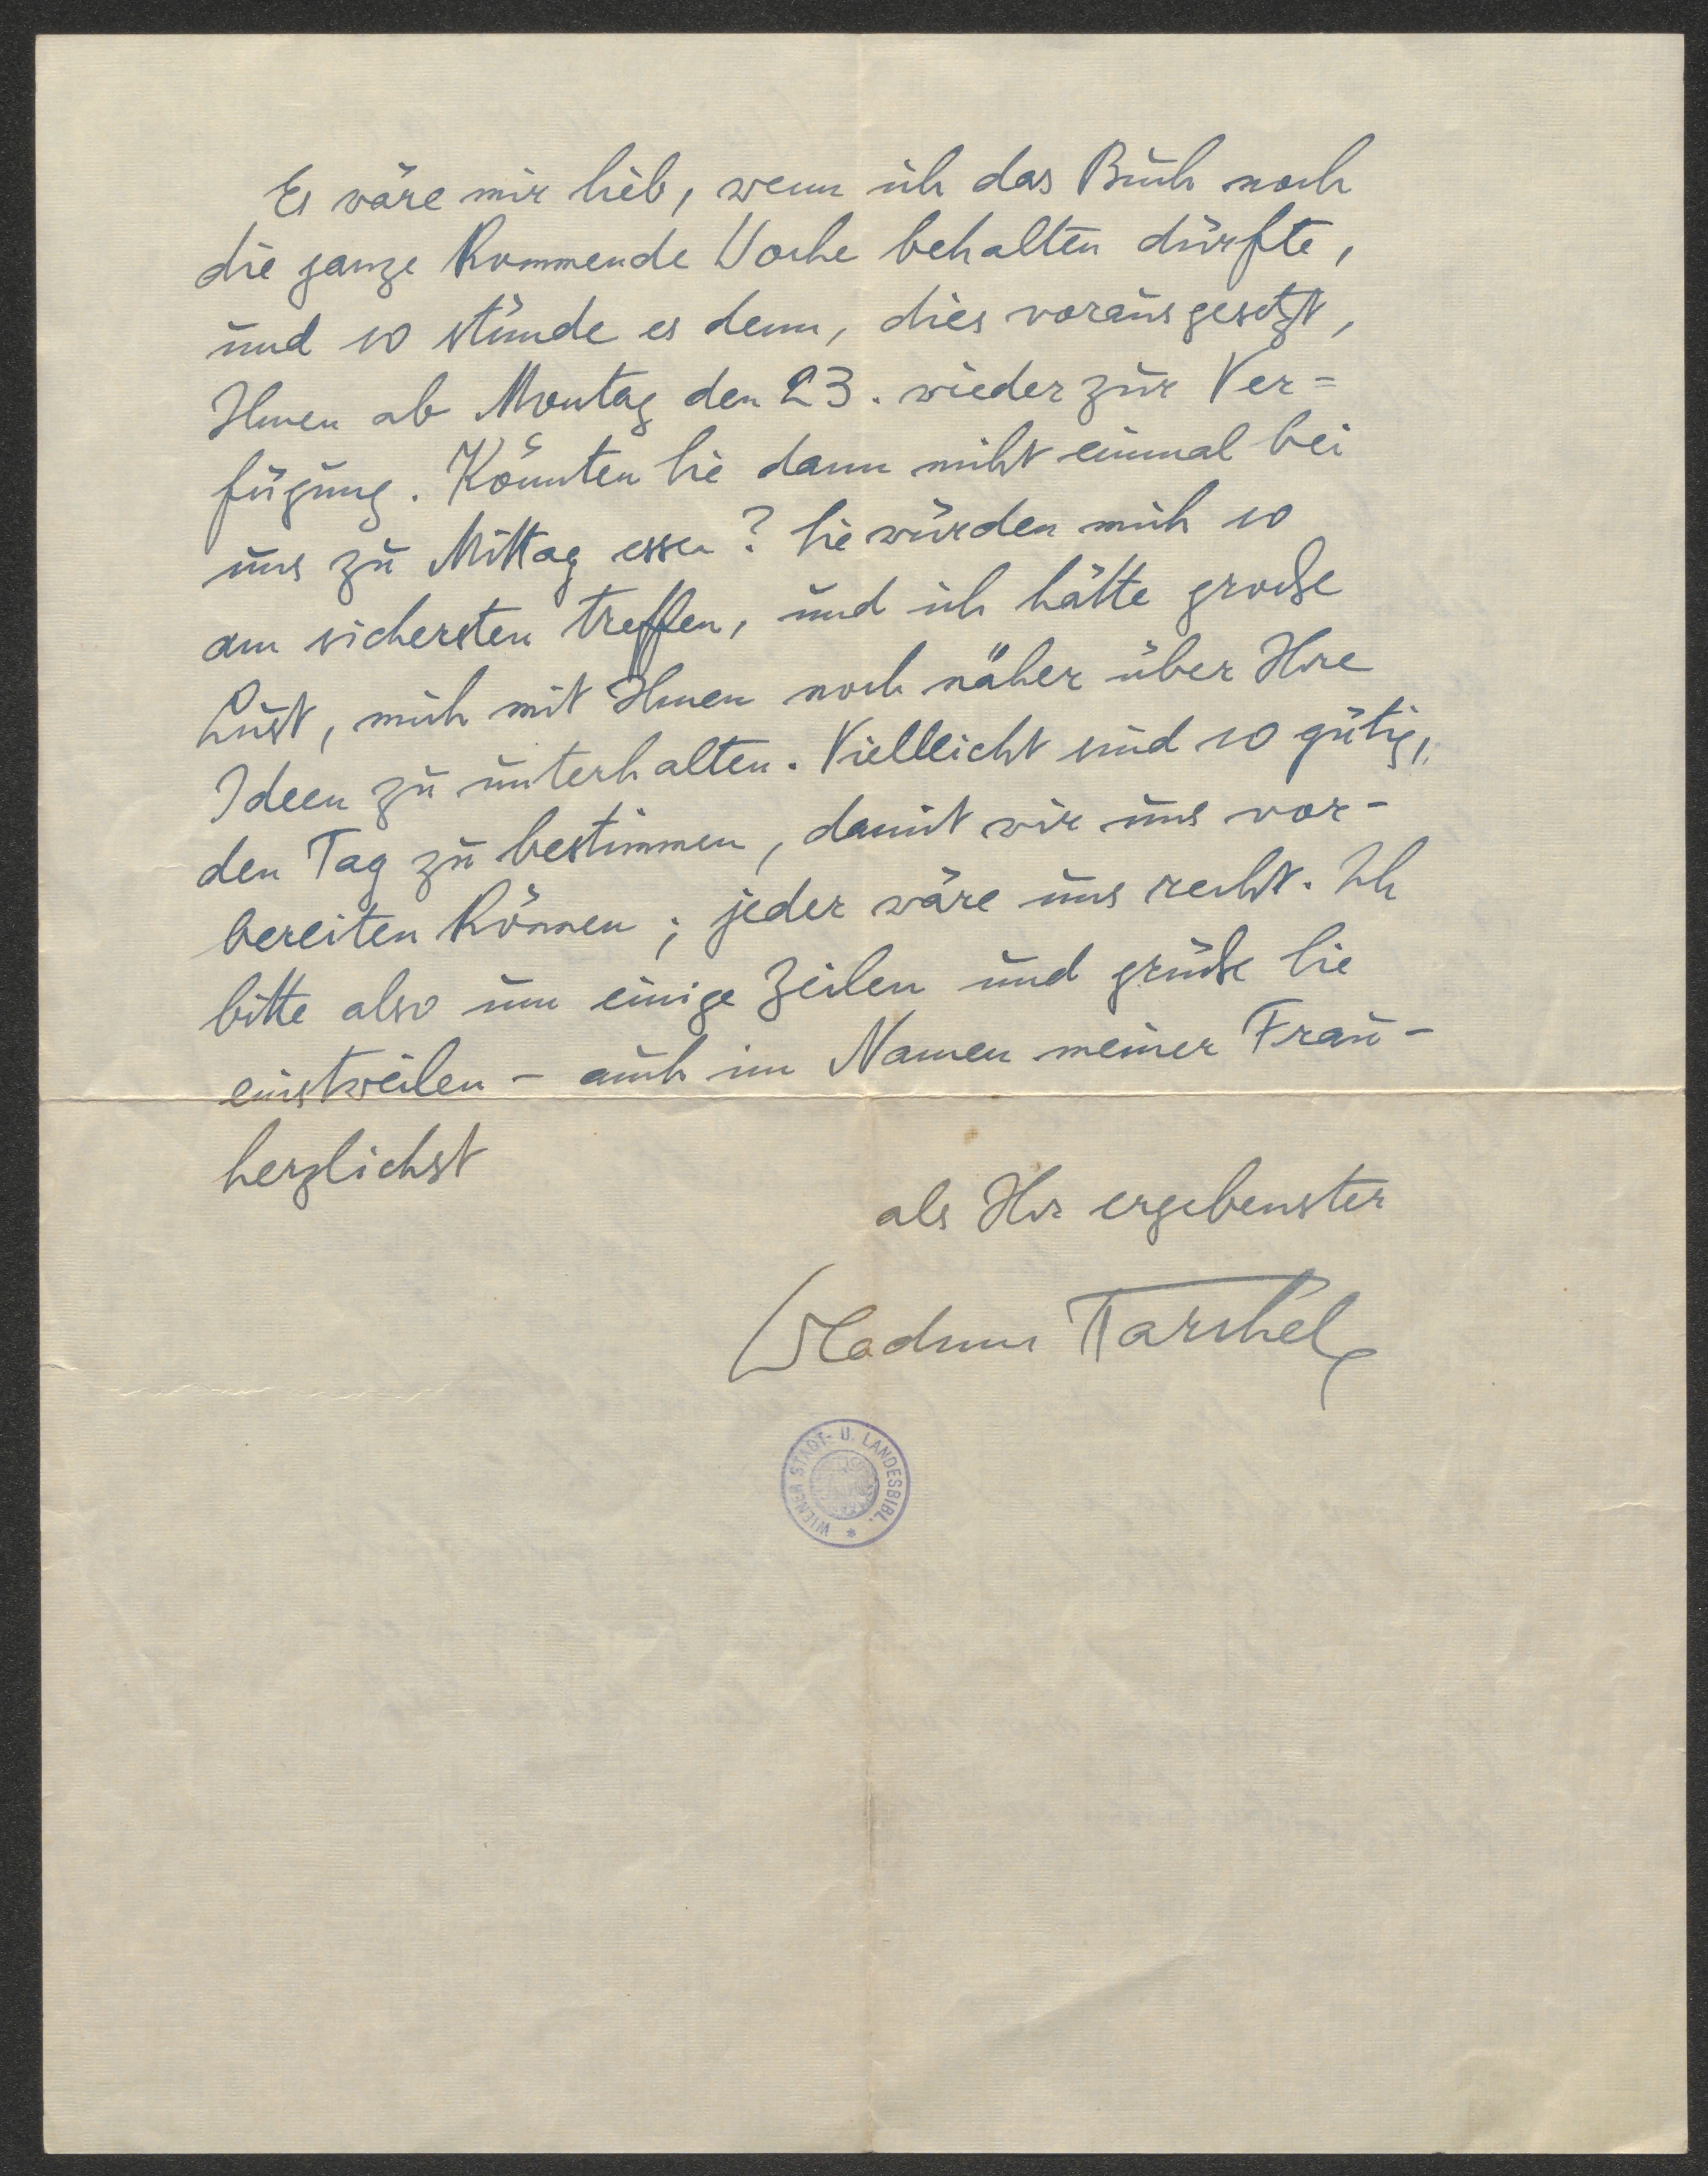 Es wäre mir lieb, wenn ich das Buch noch
die ganze kommende Woche behalten dürfte,
und so stünde es denn, dies vorausgesetzt,
Ihnen ab Montag den 23. wieder zur Ver=
fügung. Könnten Sie dann nicht einmal bei
uns zu Mittag essen? Sie würden mich so
am sichersten treffen, und ich hätte große
Lust, mich mit Ihnen noch näher über Ihre
Ideen zu unterhalten. Vielleicht sind so gütig,
den Tag zu bestimmen, damit wir uns vor-
bereiten können; jeder wäre uns recht. Ich
bitte also um einige Zeilen und grüße Sie
einstweilen – auch im Namen meiner Frau –
herzlichst
als Ihr ergebenster
WIENER STADT- U. LANDESBIBL. *